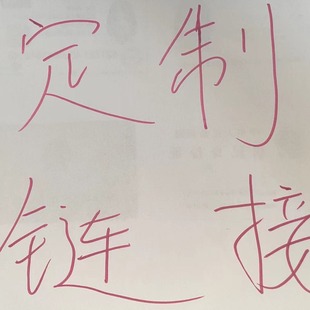 定制
链接